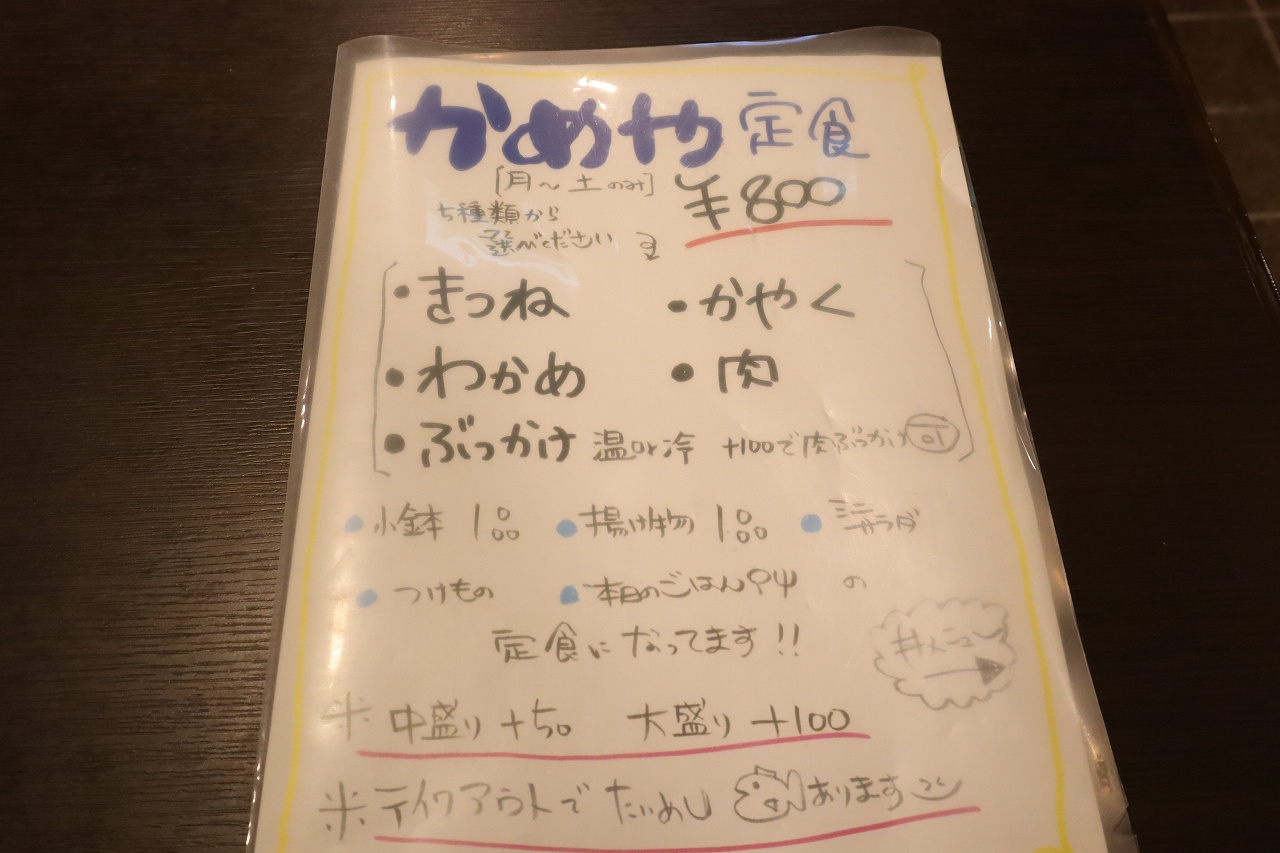 かめや定食
[月〜土のみ] ¥800
5種類から
選べください
・きつね ・かやく
・わかめ ・肉
・ぶっかけ 温or冷 +100で肉ぶっかけ可
・小鉢 1品 ・揚げ物 1品 ・ミニサラダ
・つけもの ・本日のごはん の
定食になってます!!
丼メニュー
※中盛り+50 大盛り+100
※テイクアウトでたいめしあります